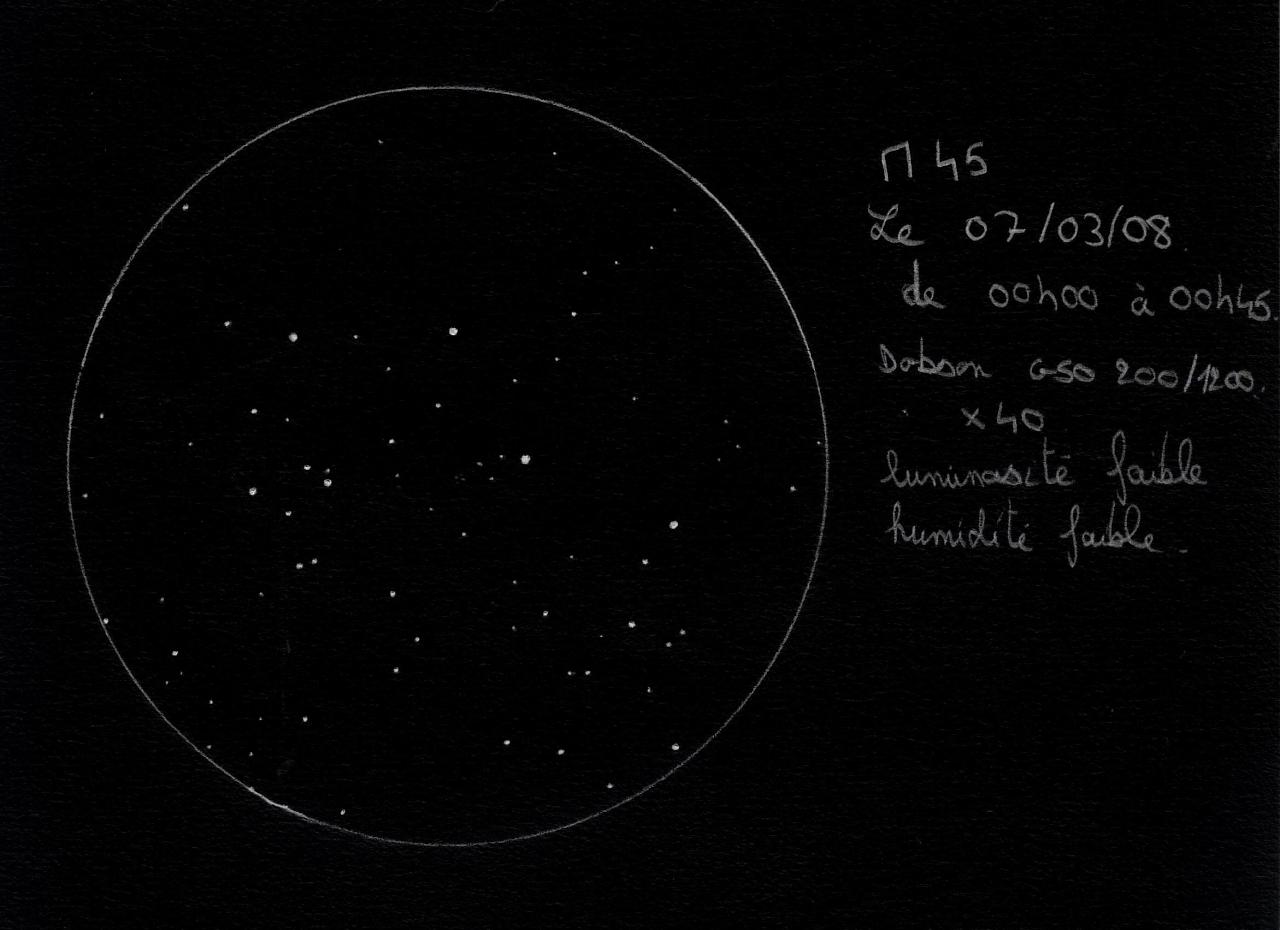 M 45
Le 07/03/08
de 00h00 à 00h45.
Dobson GSO 200/1200.
x 40
luminosité faible
humidité faible.